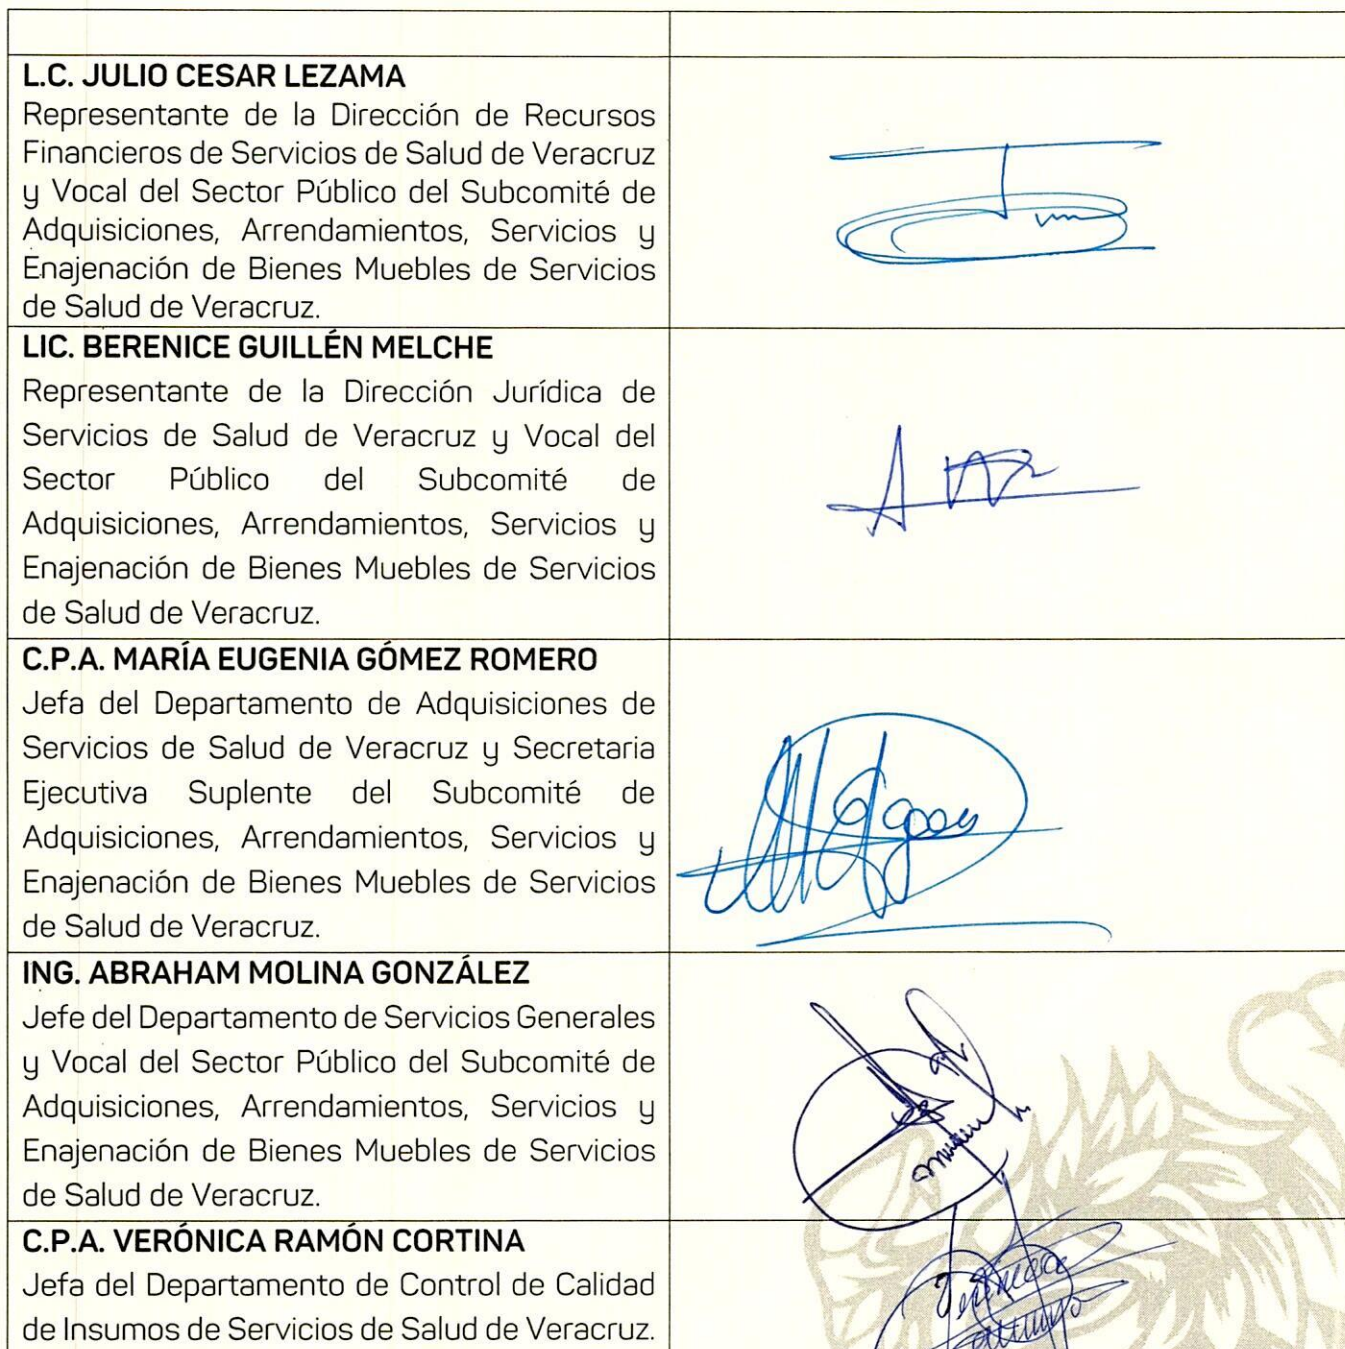 L.C. JULIO CESAR LEZAMA
Representante de la Dirección de Recursos
Financieros de Servicios de Salud de Veracruz
y Vocal del Sector Público del Subcomité de
Adquisiciones, Arrendamientos, Servicios y
Enajenación de Bienes Muebles de Servicios
de Salud de Veracruz.
LIC. BERENICE GUILLÉN MELCHE
Representante de la Dirección Jurídica de
Servicios de Salud de Veracruz y Vocal del
Sector Público del Subcomité de
Adquisiciones, Arrendamientos, Servicios y
Enajenación de Bienes Muebles de Servicios
de Salud de Veracruz.
C.P.A. MARÍA EUGENIA GÓMEZ ROMERO
Jefa del Departamento de Adquisiciones de
Servicios de Salud de Veracruz y Secretaria
Ejecutiva Suplente del Subcomité de
Adquisiciones, Arrendamientos, Servicios y
Enajenación de Bienes Muebles de Servicios
de Salud de Veracruz.
ING. ABRAHAM MOLINA GONZÁLEZ
Jefe del Departamento de Servicios Generales
y Vocal del Sector Público del Subcomité de
Adquisiciones, Arrendamientos, Servicios y
Enajenación de Bienes Muebles de Servicios
de Salud de Veracruz.
C.P.A. VERÓNICA RAMÓN CORTINA
Jefa del Departamento de Control de Calidad
de Insumos de Servicios de Salud de Veracruz.